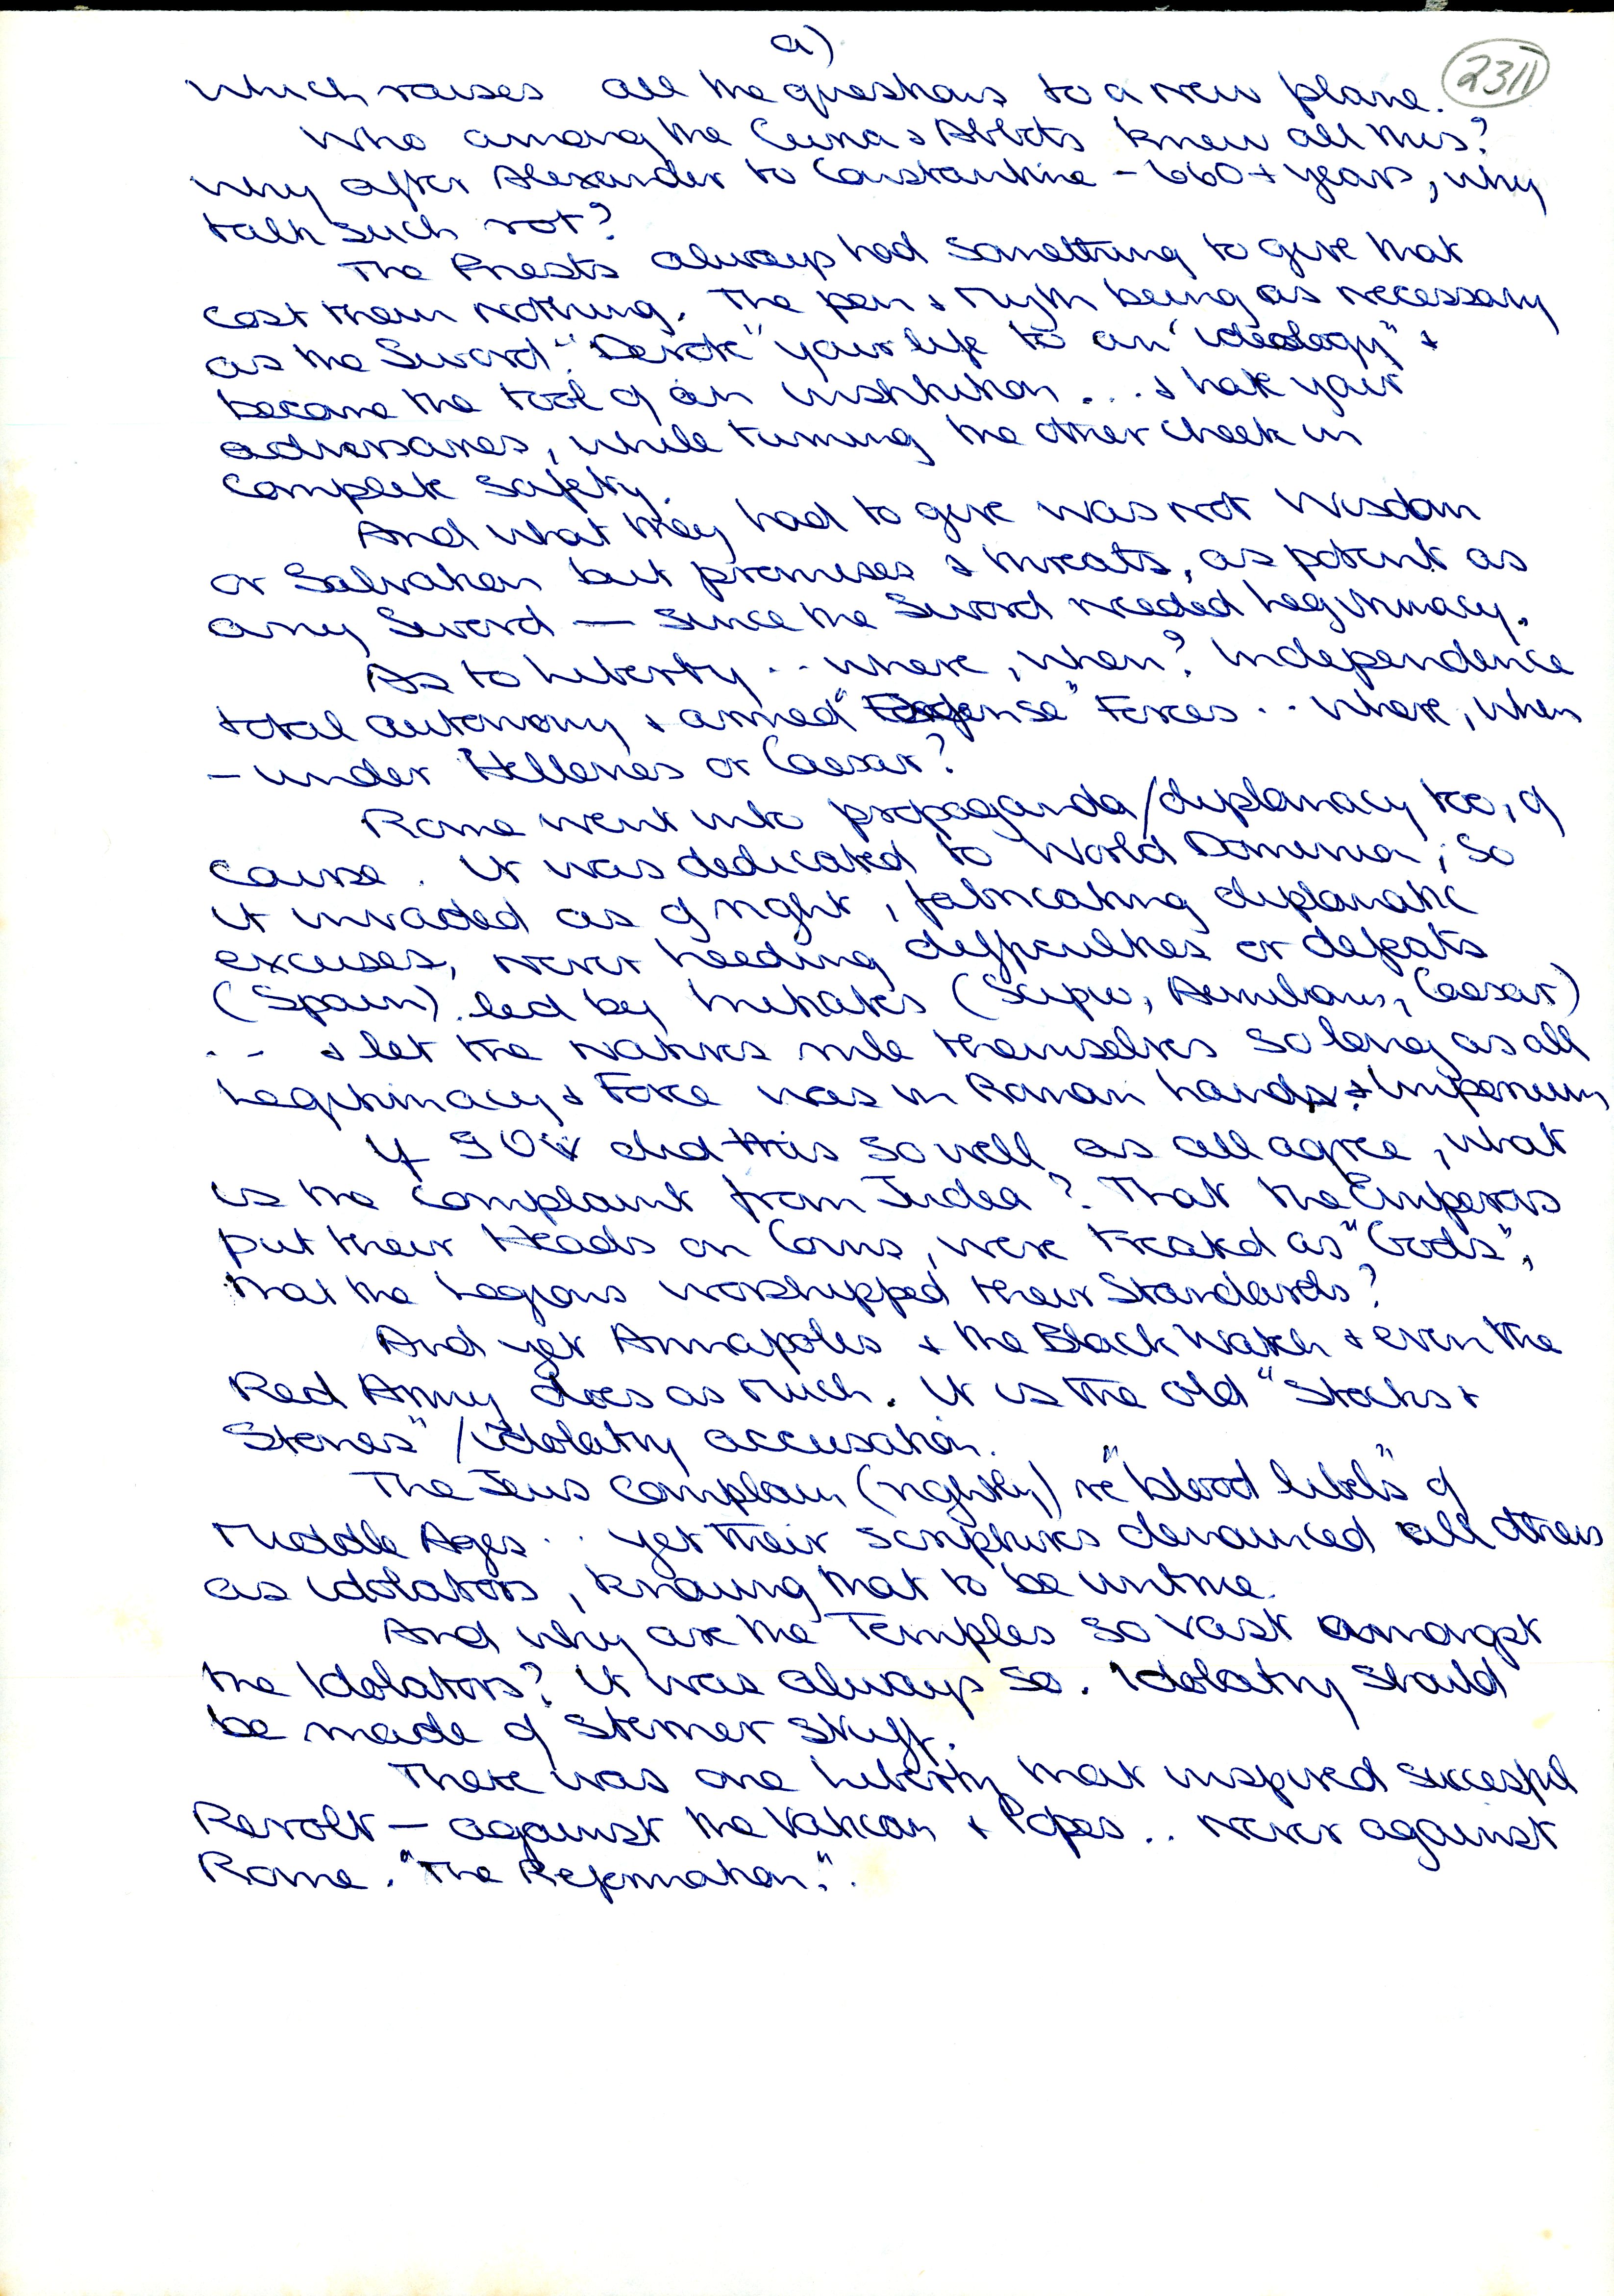 a)
2311
which raises all the questions to a new plane.
Who among the Curia & Abbots knew all this?
Why after Alexander to Constantine - 660 + years, why
talk such rot?
The Priests always had something to give that
cost them nothing. The pen & Myth being as necessary
as the Sword. "Devote" your life to an "ideology" &
become the tool of an institution ... & hate your
adversaries, while turning the other cheek in
complete safety.
And what they had to give was not Wisdom
or Salvation but promises & threats, as potent as
any Sword — since the Sword needed Legitimacy.
As to Liberty .. where, when? Independence
total autonomy & armed " Forces .. where, when
— under Hellenes or Caesar?
Rome went into propaganda/diplomacy too, of
course. It was dedicated to World Dominion; so
it invaded as of right, fabricating diplomatic
excuses, never heeding difficulties or defeats
(Spain) led by (Scipio, Aemilianus, Caesar)
.. & let the natives rule themselves so long as all
Legitimacy & Force was in Roman hands & Imperium
If did this so well as all agree, what
is the complaint from Judea? That the Emperors
put their Heads on Coins, were treated as "Gods",
that the Legions worshipped their Standards?
And yet Annapolis & the Black Watch & even the
Red Army does as much. It is the old "Stocks &
Stones" / idolatry accusation.
The Jews complain (rightly) re "blood libels" of
Middle Ages .. yet their scriptures denounced all others
as idolators, knowing that to be untrue.
And why are the Temples so vast amongst
the Idolators? It was always so. Idolatry should
be made of sterner stuff.
There was one Liberty that inspired succesful
Revolt — against the Vatican & Popes .. never against
Rome. "The Reformation."